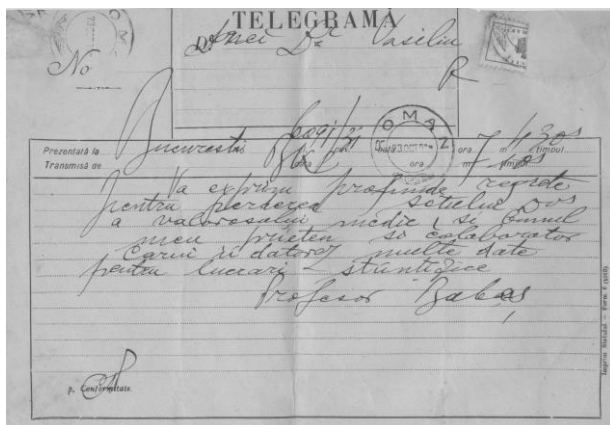 TELEGRAMĂ
Dr Vasiliu
No
R
ROMAN
Prezentată la Bucuresti ora m timpul
Transmisă de ora m timpul
Va exprim profunde regrete
pentru perderea sotului Dvs
a valorosului medic si bunul
meu prieten si colaborator
carui ii datorez multe date
pentru lucrari stiintifice
Profesor Babeș
p. Conformitate